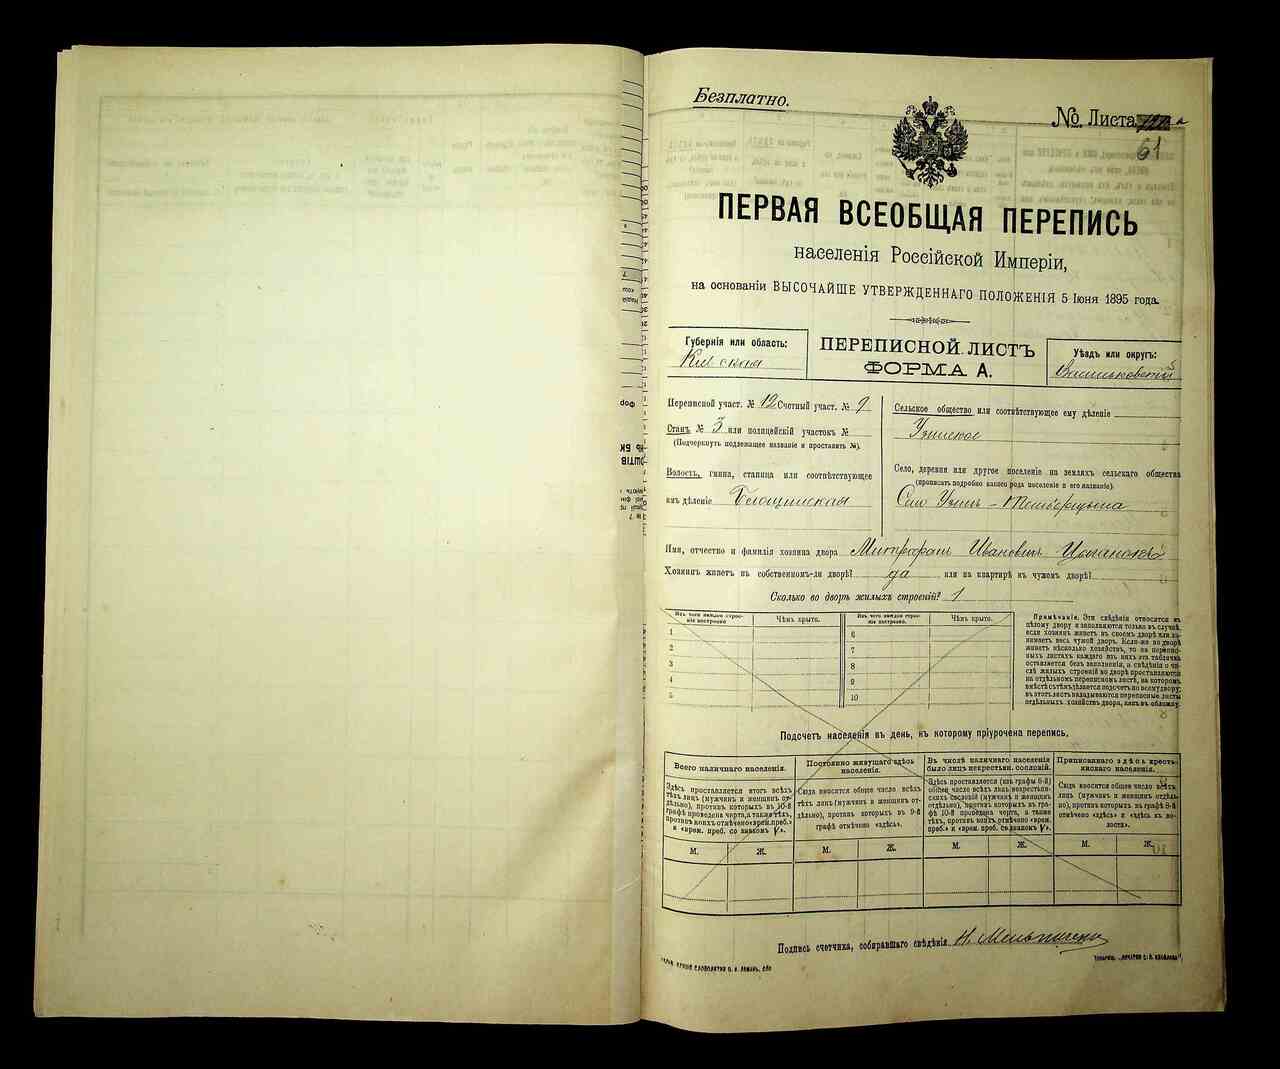 Безплатно.
№ Листа
61
ПЕРВАЯ ВСЕОБЩАЯ ПЕРЕПИСЬ
населенія Россійской Имперіи,
на основаніи ВЫСОЧАЙШЕ УТВЕРЖДЕННАГО ПОЛОЖЕНІЯ 5 Іюня 1895 года.
Губернія или область:
Кіевская
ПЕРЕПИСНОЙ ЛИСТЪ
ФОРМА А.
Уѣздъ или округъ:
Васильковскій
Переписной участ. № 12 Счетный участ. № 9
Станъ № 3 или полицейскій участокъ №
(Подчеркнуть подлежащее названіе и проставить №).
Волость, гмина, станица или соотвѣтствующее
имъ дѣленіе
Сельское общество или соотвѣтствующее ему дѣленіе
Село, деревня или другое поселеніе на земляхъ сельскаго общества
(прописать подробно какого рода поселеніе и его названіе).
Имя, отчество и фамилія хозяина двора Митрофанъ Ивановичъ
Хозяинъ живетъ въ собственномъ-ли дворѣ? да или на квартирѣ въ чужомъ дворѣ?
Сколько во дворѣ жилыхъ строеній? 1
Изъ чего каждое строеніе построено
Чѣмъ крыто.
1
2
3
4
5
Изъ чего каждое строеніе построено
Чѣмъ крыто.
6
7
8
9
10
Примѣчаніе. Эти свѣдѣнія относятся къ
цѣлому двору и заполняются только въ случаѣ,
если хозяинъ живетъ въ своемъ дворѣ или занимаетъ
весь чужой дворъ. Если-же во дворѣ
живетъ нѣсколько хозяйствъ, то на переписныхъ
листахъ каждаго изъ нихъ эта табличка
оставляется безъ заполненія, а свѣдѣнія о числѣ
жилыхъ строеній во дворѣ проставляются
на отдѣльномъ переписномъ листѣ, на которомъ
вмѣстѣ съ тѣмъ дѣлается подсчетъ по всему двору;
въ этотъ листъ вкладываются переписные листы
отдѣльныхъ хозяйствъ двора, какъ въ обложку.
Подсчетъ населенія въ день, къ которому пріурочена перепись.
Всего наличнаго населенія.
Здѣсь проставляется итогъ всѣхъ
лицъ (мужчинъ и женщинъ отдѣльно),
противъ которыхъ въ 10-й
графѣ проведена черта, а также тѣхъ,
противъ коихъ отмѣчено «врем. преб.»
и «врем. преб. со знакомъ V».
М. Ж.
Постоянно живущаго здѣсь
населенія.
Сюда вносится общее число всѣхъ
тѣхъ лицъ (мужчинъ и женщинъ отдѣльно),
противъ которыхъ въ 9-й
графѣ отмѣчено «здѣсь».
М. Ж.
Въ числѣ наличнаго населенія
было лицъ некрестьян. сословій.
Здѣсь проставляется (изъ графы 6-й)
общее число всѣхъ лицъ некрестьянскихъ
сословій (мужчинъ и женщинъ
отдѣльно), противъ которыхъ въ графѣ
10-й проведена черта, а также
тѣхъ, противъ коихъ отмѣчено «врем.
преб.» и «врем. преб. со знакомъ V».
М. Ж.
Приписаннаго здѣсь крестьянскаго
населенія.
Сюда вносится общее число всѣхъ
лицъ (мужчинъ и женщинъ отдѣльно),
противъ которыхъ въ графѣ 8-й
отмѣчено «здѣсь» и «здѣсь къ волости».
М. Ж.
Подпись счетчика, собиравшаго свѣдѣнія